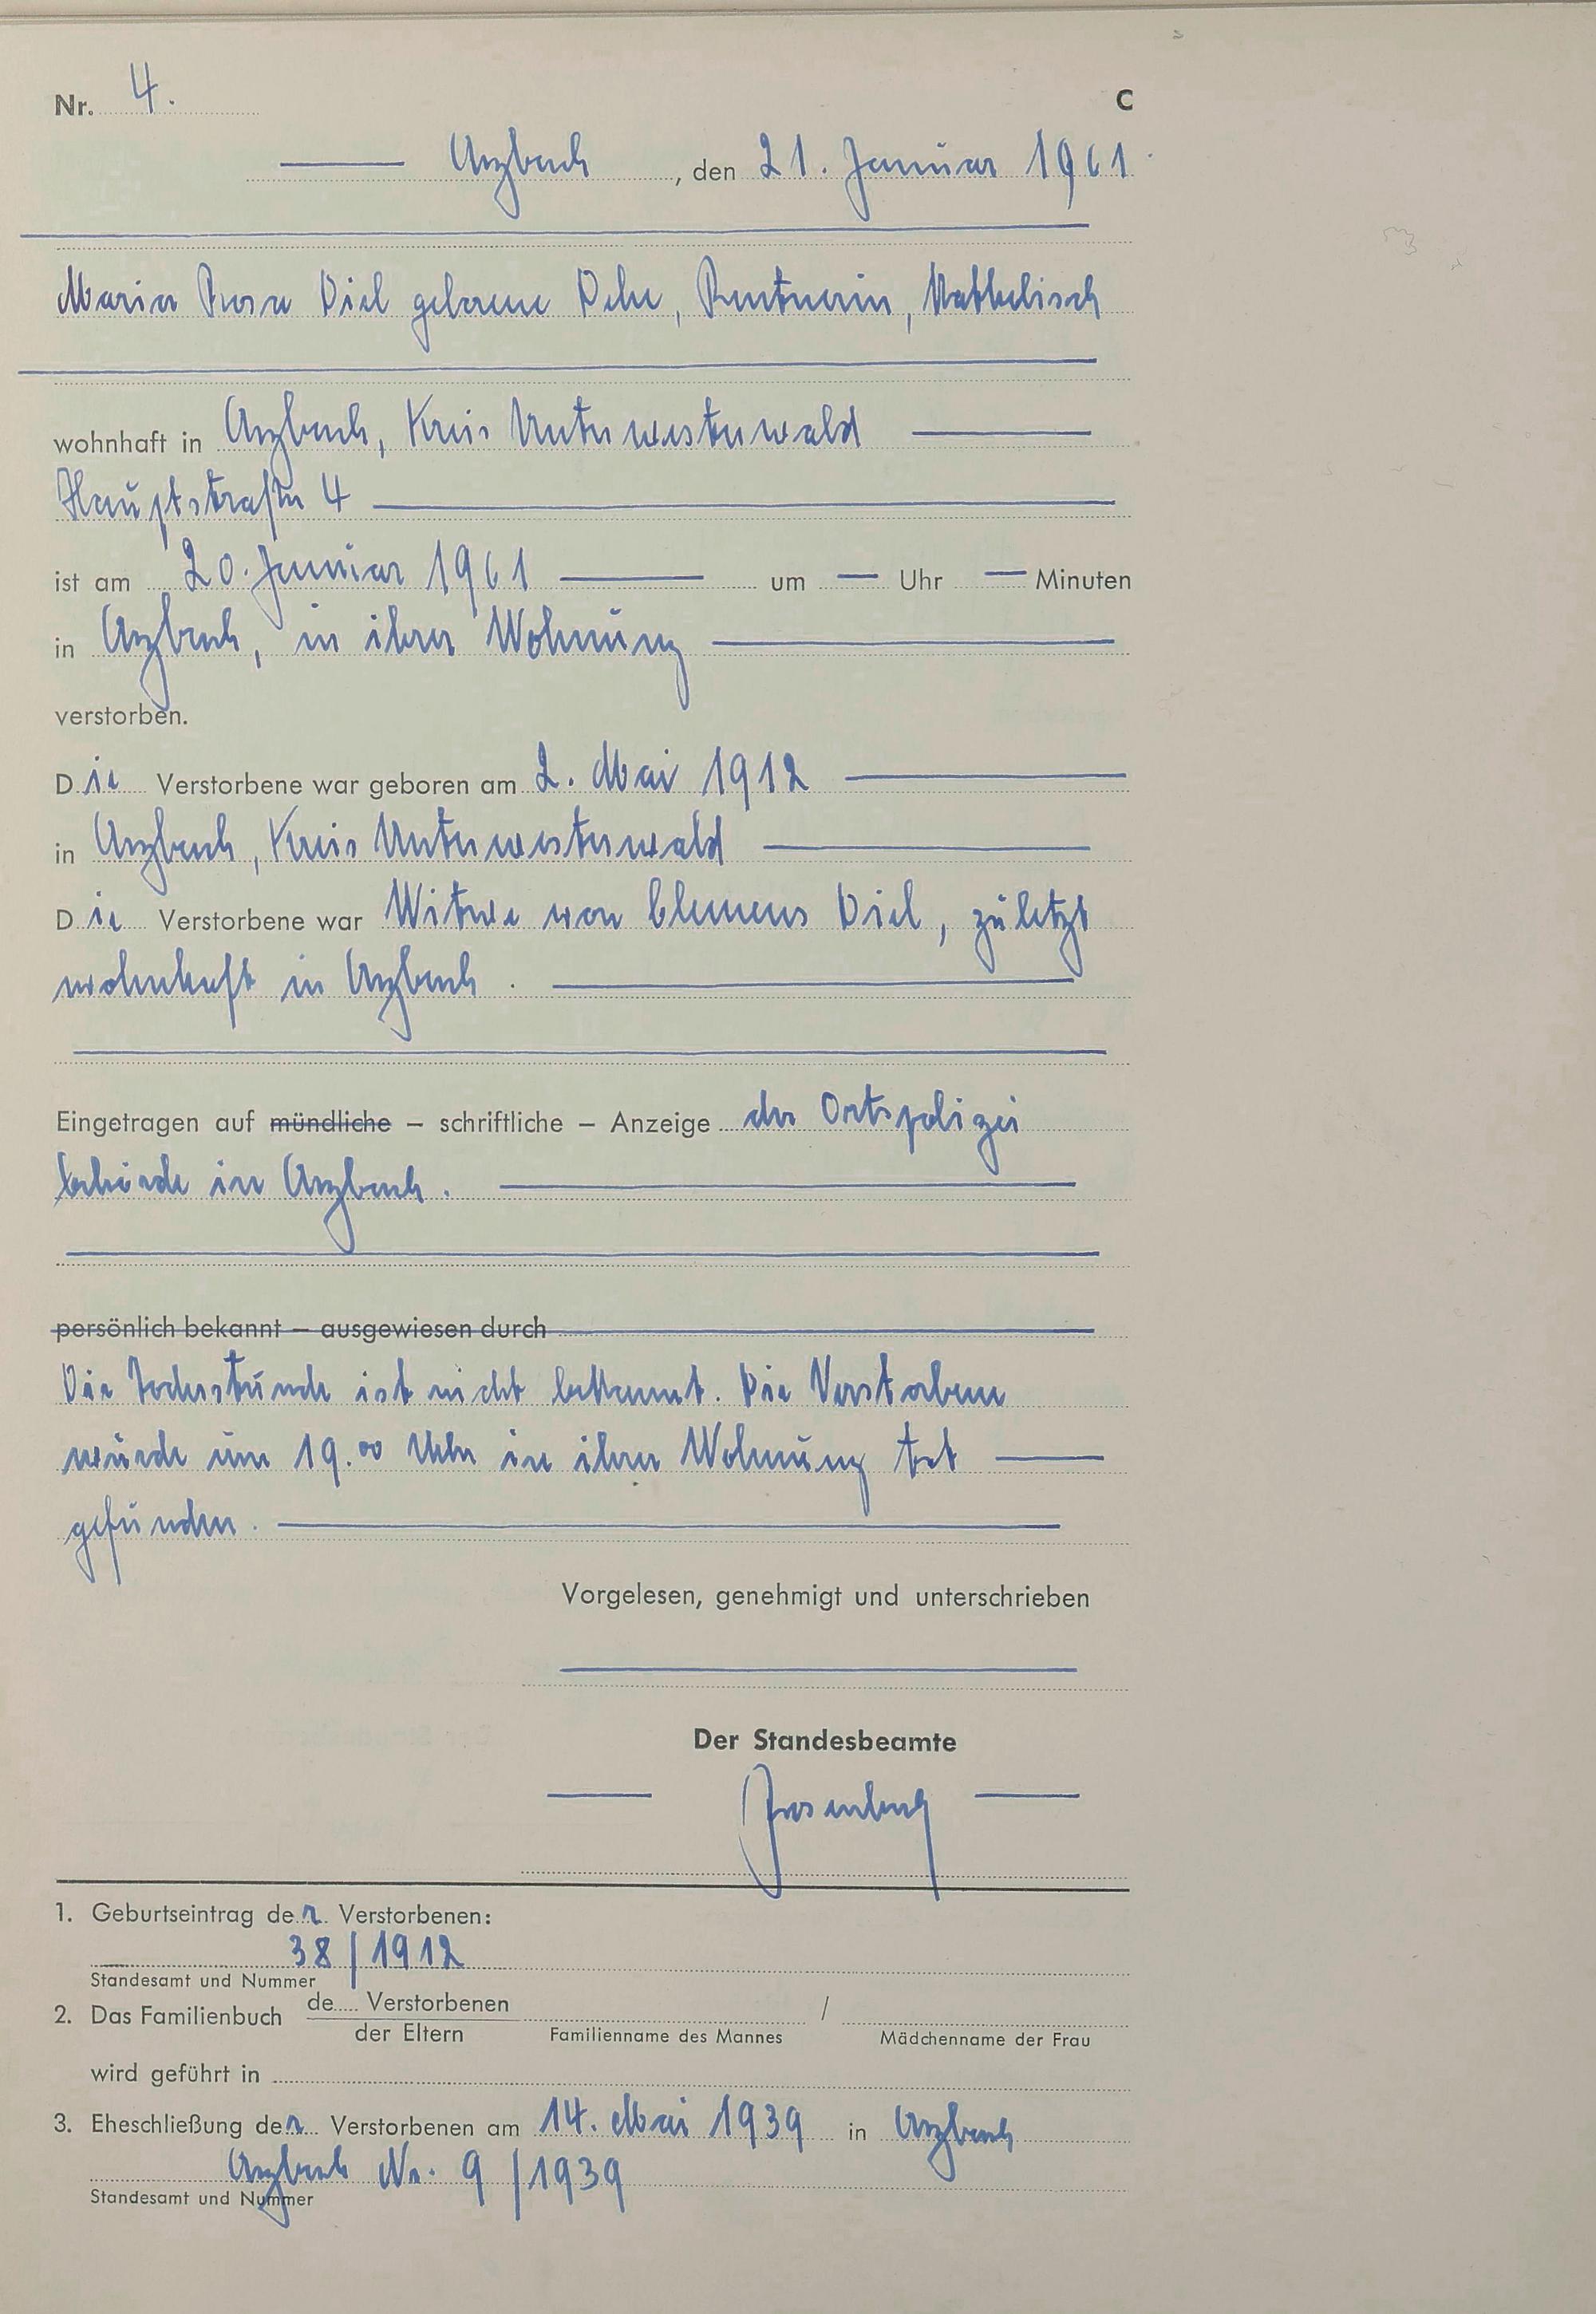 Nr. 4. C
Arzbach, den 21. Januar 1961.
Maria Rosa Diel geborene Dehe, Rentnerin, katholisch
wohnhaft in Arzbach, Kreis Unterwesterwald
Hauptstraße 4
ist am 20. Januar 1961 um — Uhr — Minuten
in Arzbach, in ihrer Wohnung
verstorben.
Die Verstorbene war geboren am 2. Mai 1912
in Arzbach, Kreis Unterwesterwald
Die Verstorbene war Witwe von Clemens Diel, zuletzt
wohnhaft in Arzbach.
Eingetragen auf mündliche – schriftliche – Anzeige der Ortspolizei
behörde in Arzbach.
persönlich bekannt – ausgewiesen durch
Die Todesstunde ist nicht bekannt. Die Verstorbene
wurde um 19.00 Uhr in ihrer Wohnung tot
gefunden.
Vorgelesen, genehmigt und unterschrieben
Der Standesbeamte
1. Geburtseintrag der Verstorbenen:
38/1912
Standesamt und Nummer
2. Das Familienbuch de.... Verstorbenen /
der Eltern Familienname des Mannes Mädchenname der Frau
wird geführt in
3. Eheschließung der Verstorbenen am 14. Mai 1939 in Arzbach
Arzbach Nr. 9/1939
Standesamt und Nummer